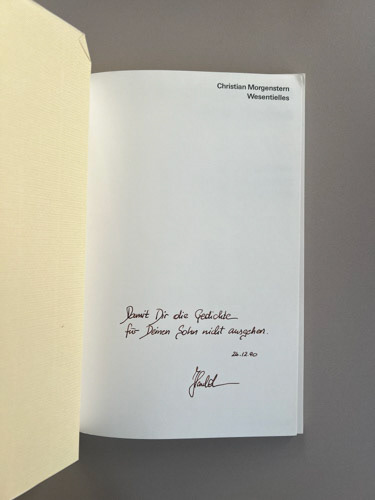 Christian Morgenstern
Wesentielles
Damit Dir die Gedichte
für Deinen Sohn nicht ausgehen.
24.12.90